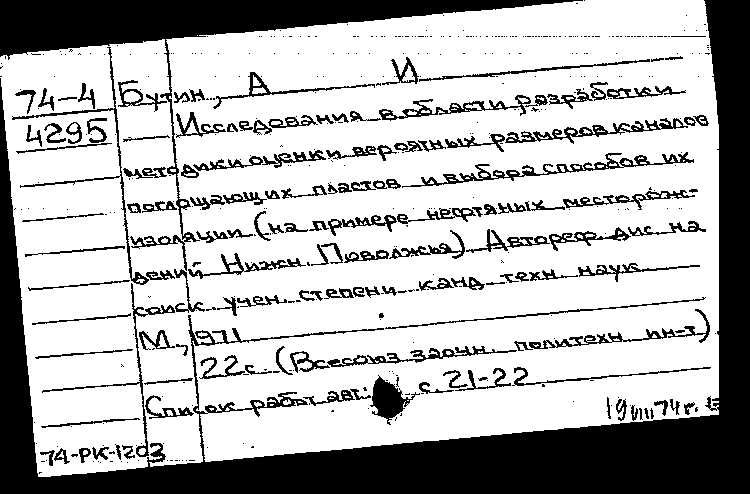 74-4
4295
Бутин, А И
Исследования в области разработки
методики оценки вероятных размеров каналов
поглощающих пластов и выбора способов их
изоляции (на примере нефтяных месторож-
дений Нижн. Поволжья). Автореф. дис. на
соиск. учен. степени канд. техн. наук
М., 1971
22с. (Всесоюз. заочн. политехн. ин-т).
Список работ авт.: с. 21-22.
19 VIII 74 г.
74-РК-1203